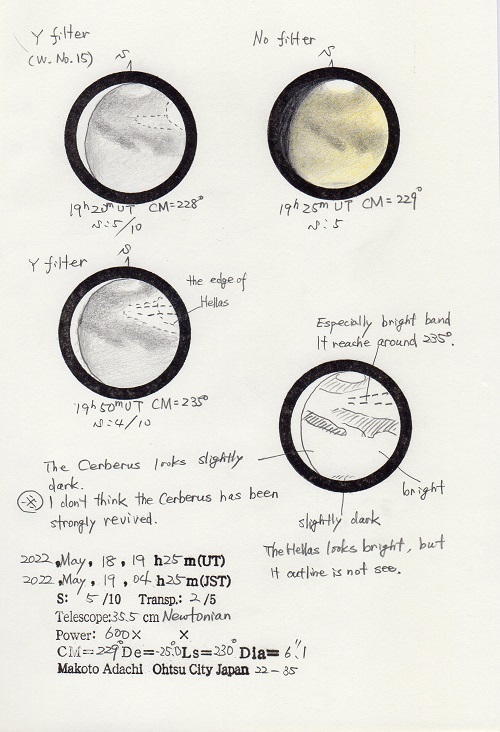 Y filter
(W. No. 15)
No filter
S
S
19h 20m UT CM=228°
S:5/10
19h 25m UT CM=229°
S:5
Y filter
S
the edge of
Hellas
19h 50m UT CM=235°
S:4/10
Especially bright band
It reache around 235°.
The Cerberus looks slightly
dark.
※ I don't think the Cerberus has been
strongly revived.
bright
slightly dark
The Hellas looks bright, but
it outline is not see.
2022, May, 18, 19 h25m(UT)
2022, May, 19, 04 h25m(JST)
S: 5/10 Transp.: 2/5
Telescope:35.5 cm Newtonian
Power: 600× ×
CM=229° De=-25.0 Ls=230° Dia=6".1
Makoto Adachi Ohtsu City Japan 22-35